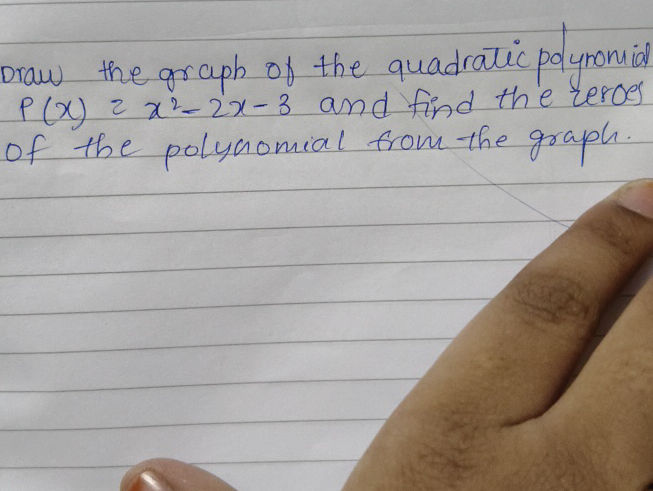 Draw the graph of the quadratic polynomial
P(x) = x²-2x-3 and find the zeroes
of the polynomial from the graph.